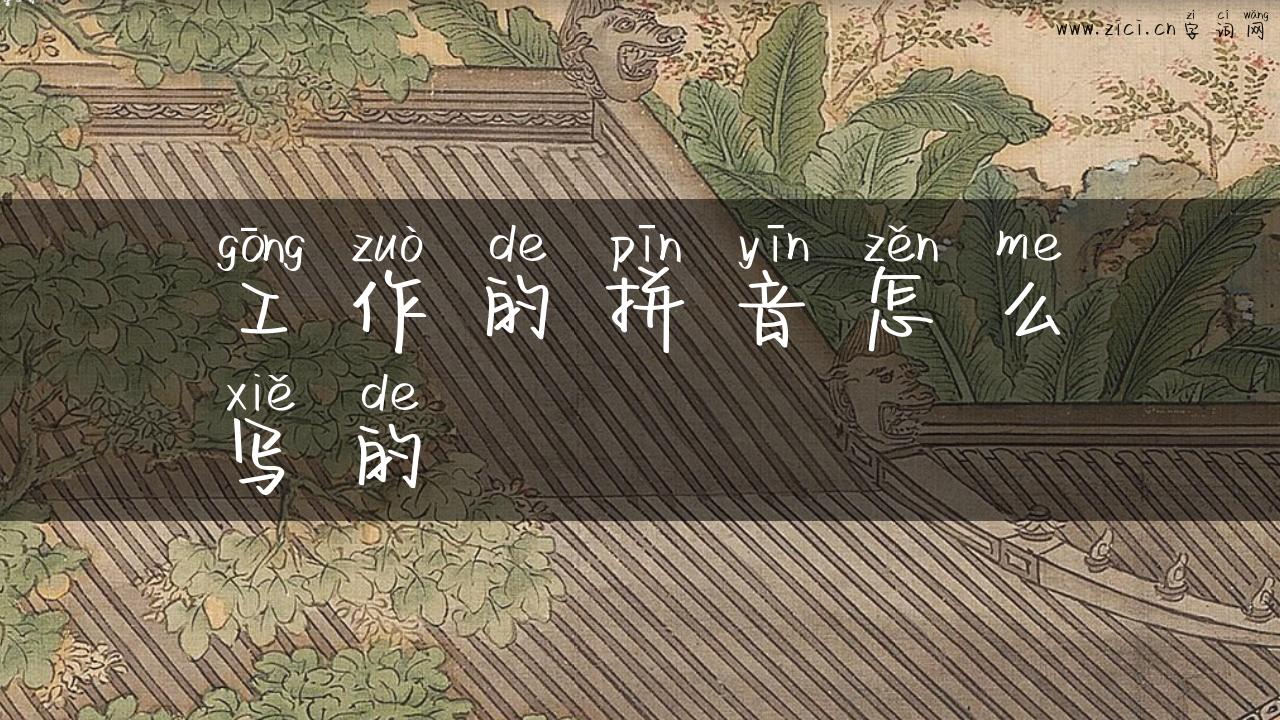 zì cí wǎng
www.zici.cn 字 词 网
gōng zuò de pīn yīn zěn me
工 作 的 拼 音 怎 么
xiě de
写 的